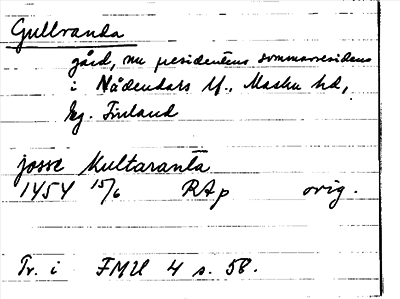 Gullranda
gård, nu presidentens sommarresidens
i Nådendals lf., Masku hd,
lkg. Finland
josse Kultaranta
1454 15/6 RAp orig.
Tr. i FMU 4 s. 58.